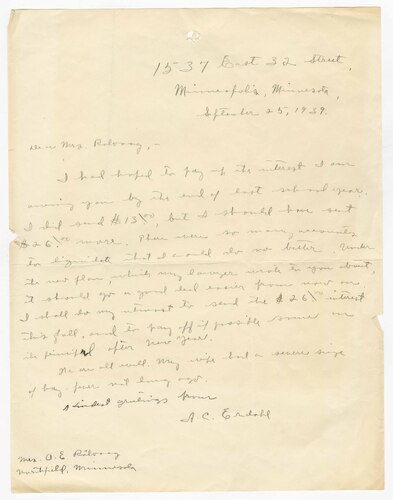 1537 East 32 Street,
Minneapolis, Minnesota,
September 25, 1939.
Dear Mrs Rölvaag,-
I had hoped to pay up the interest I am
owing you by the end of last school year.
I did send $13 00, but I should have sent
$26 00 more. There were so many accounts
to liquidate that I could do no better. Under
the new plan, which my lawyer wrote to you about,
it should go a good deal easier from now on.
I shall do my utmost to send the $26 00 interest
this fall, and to pay off if possible some on
the principal after New Year.
We are all well. My wife had a severe siege
of hay-fever not long ago.
Kindest greetings from
A. C. Erdahl
Mrs. O. E. Rölvaag
Northfield, Minnesota